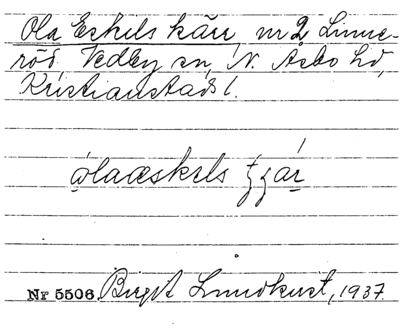 Ola Eskels kärr nr 2 Linne-
röd Vedby sn, N. Åsbo hd,
Kristianstads l.
ọlaæskels
Nr 5506. Birgit Lundkvist, 1937.